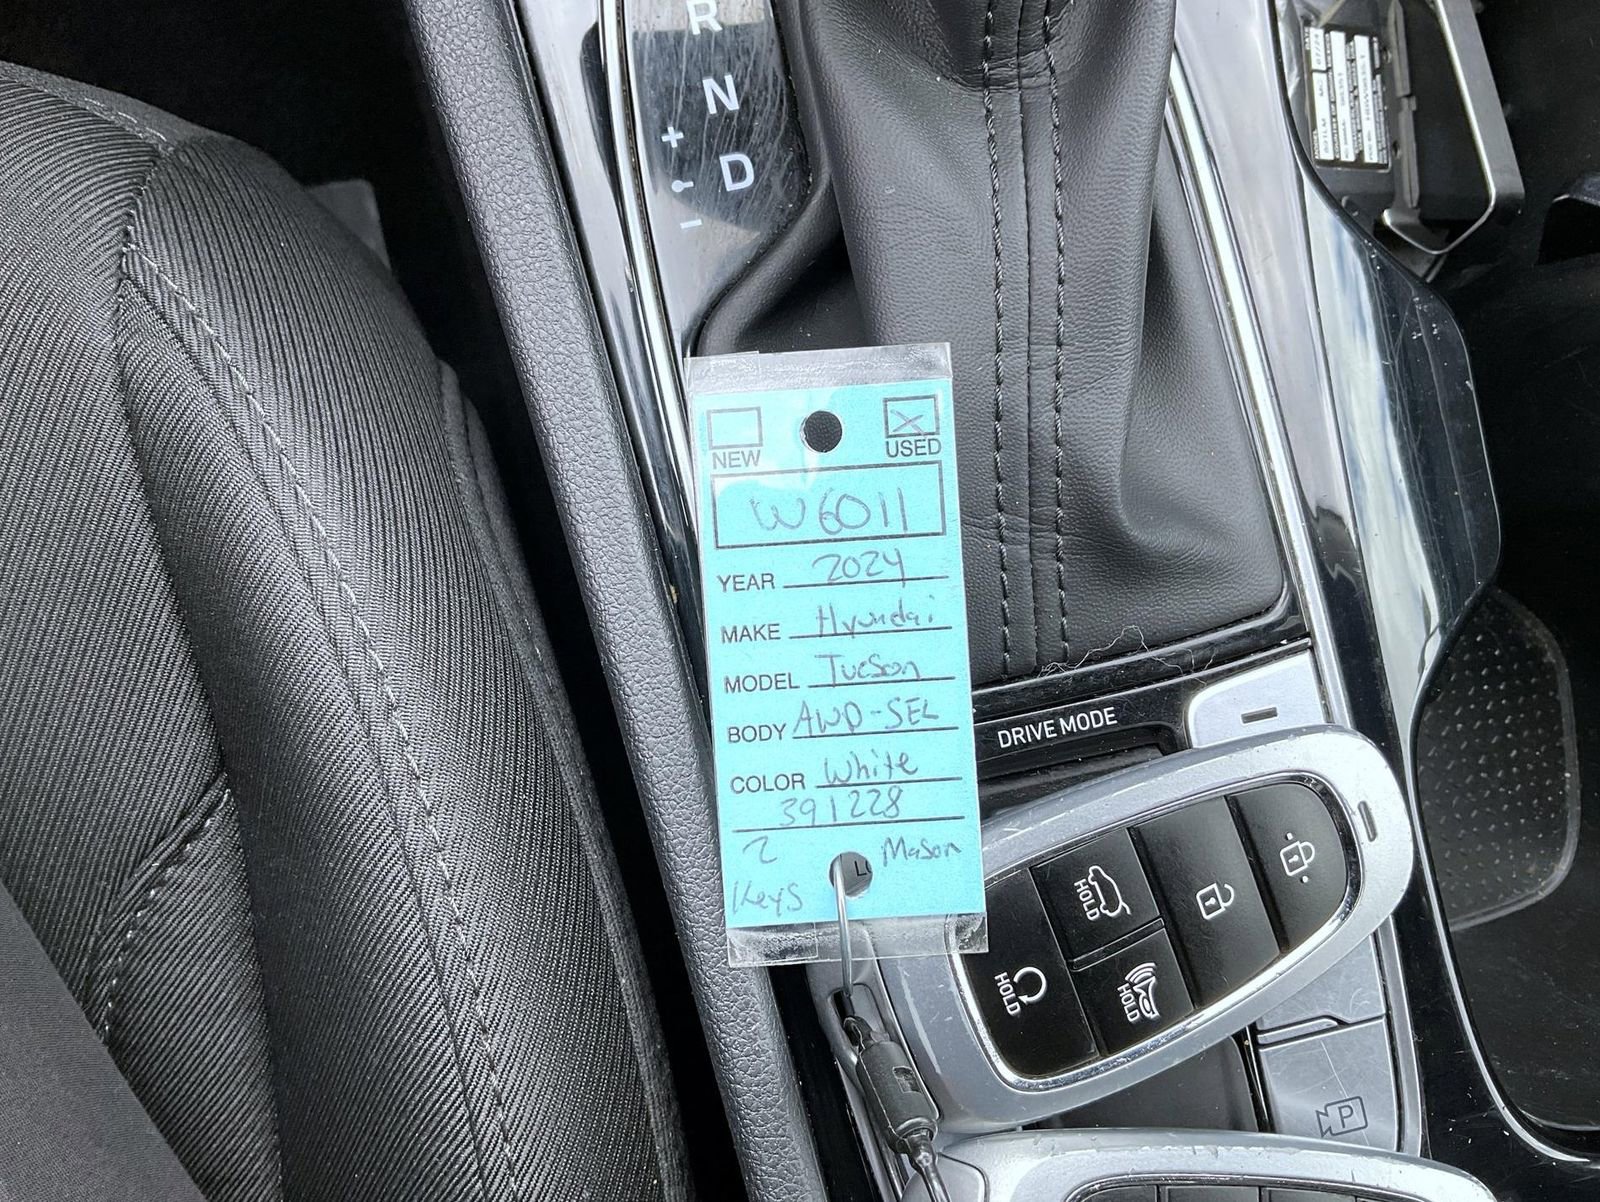 R
N
+
D
-
NEW USED
W6011
YEAR 2024
MAKE Hyundai
MODEL Tucson
BODY AWD-SEL
COLOR White
391228
2 Mason
Keys
DRIVE MODE
HOLD
HOLD
HOLD
P